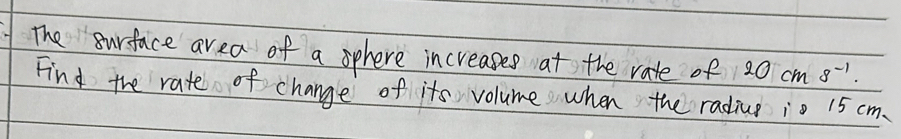 The surface area of a sphere increases at the rate of 20 cm s⁻¹.
Find the rate of change of its volume when the radius is 15 cm.